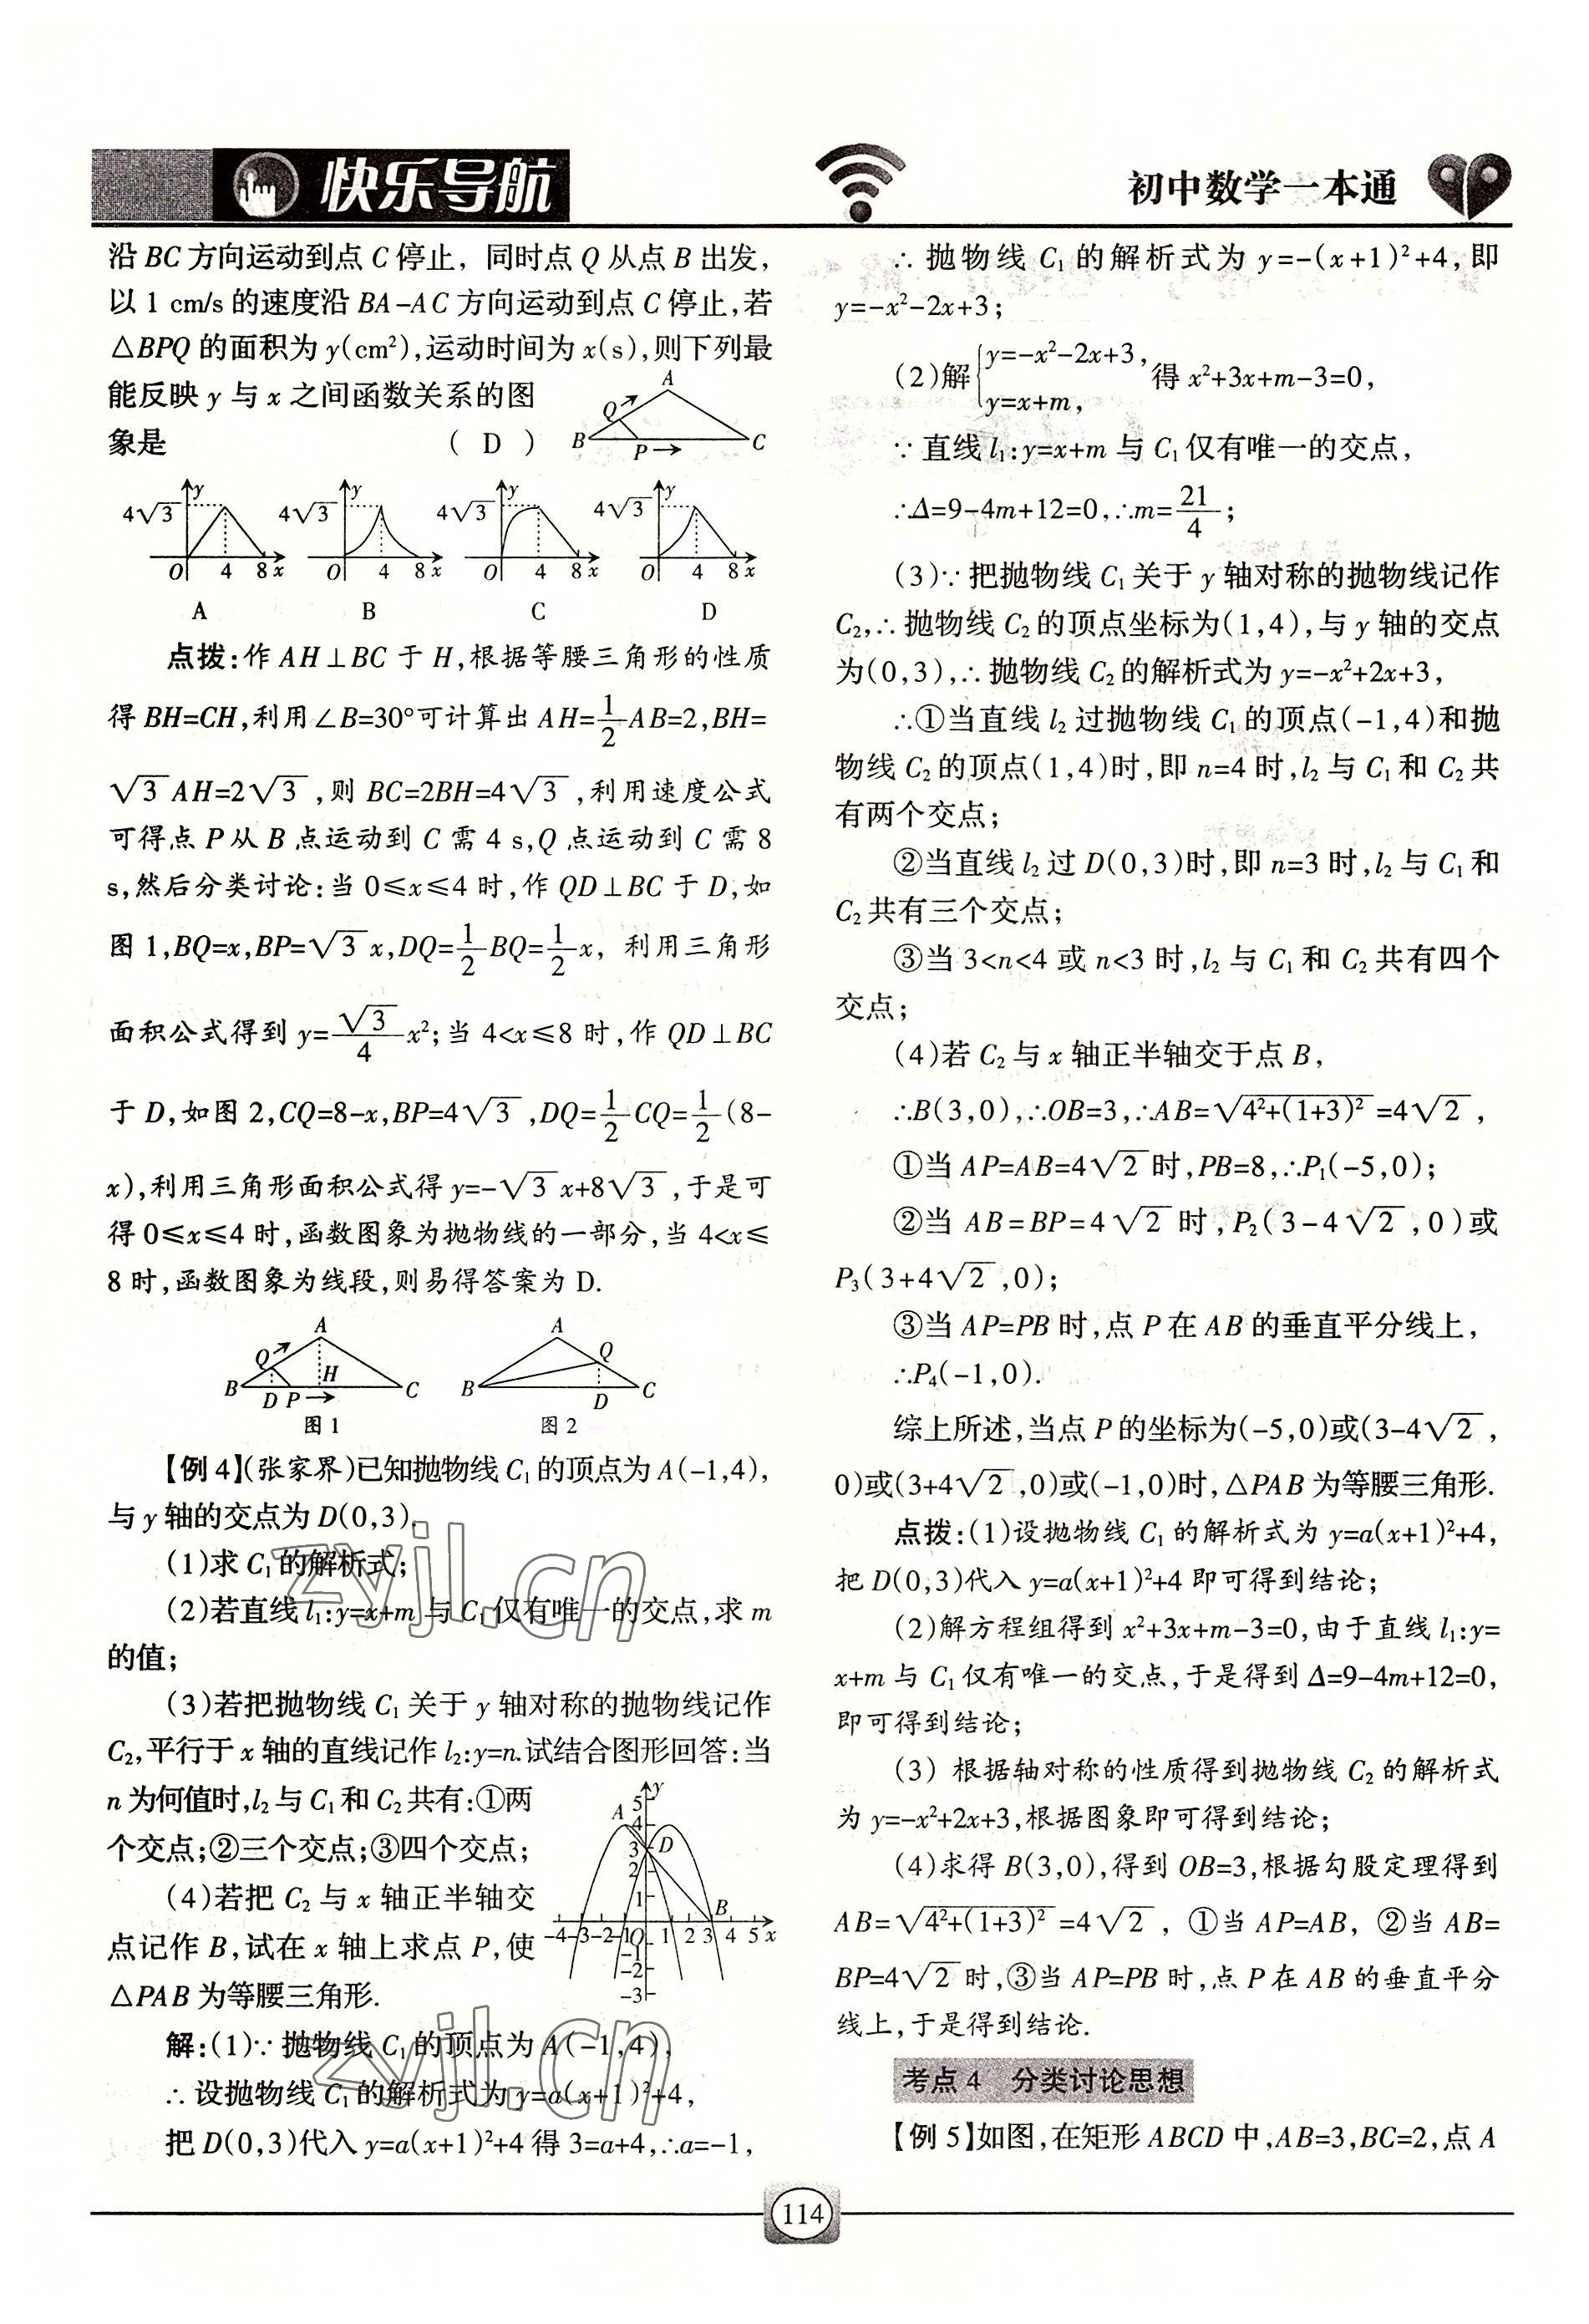 快乐导航
初中数学一本通
沿 BC 方向运动到点 C 停止，同时点 Q 从点 B 出发，
以 1 cm/s 的速度沿 BA-AC 方向运动到点 C 停止,若
△BPQ 的面积为 y(cm²),运动时间为 x(s),则下列最
能反映 y 与 x 之间函数关系的图
象是 ( D )
A
Q
B P C
4√3 y O 4 8 x
4√3 y O 4 8 x
4√3 y O 4 8 x
4√3 y O 4 8 x
A B C D
点拨:作 AH⊥BC 于 H,根据等腰三角形的性质
得 BH=CH,利用∠B=30°可计算出 AH=1/2 AB=2,BH=
√3 AH=2√3 ,则 BC=2BH=4√3 ,利用速度公式
可得点 P 从 B 点运动到 C 需 4 s,Q 点运动到 C 需 8
s,然后分类讨论:当 0≤x≤4 时,作 QD⊥BC 于 D,如
图 1,BQ=x,BP=√3 x,DQ=1/2 BQ=1/2 x，利用三角形
面积公式得到 y=√3/4 x²;当 4<x≤8 时,作 QD⊥BC
于 D,如图 2,CQ=8-x,BP=4√3 ,DQ=1/2 CQ=1/2 (8-
x),利用三角形面积公式得 y=-√3 x+8√3 ,于是可
得 0≤x≤4 时,函数图象为抛物线的一部分,当 4<x≤
8 时,函数图象为线段,则易得答案为 D.
A Q H B D P C
A Q B D C
图 1 图 2
【例 4】(张家界)已知抛物线 C₁ 的顶点为 A(-1,4),
与 y 轴的交点为 D(0,3).
(1)求 C₁ 的解析式;
(2)若直线 l₁:y=x+m 与 C₁ 仅有唯一的交点,求 m
的值;
(3)若把抛物线 C₁ 关于 y 轴对称的抛物线记作
C₂,平行于 x 轴的直线记作 l₂:y=n.试结合图形回答:当
n 为何值时,l₂ 与 C₁ 和 C₂ 共有:①两
个交点;②三个交点;③四个交点;
(4)若把 C₂ 与 x 轴正半轴交
点记作 B,试在 x 轴上求点 P,使
△PAB 为等腰三角形.
y
A 5
4
3 D
2
1 B
-4-3-2-1O 1 2 3 4 5 x
-1
-2
-3
解:(1)∵ 抛物线 C₁ 的顶点为 A(-1,4),
∴ 设抛物线 C₁ 的解析式为 y=a(x+1)²+4,
把 D(0,3)代入 y=a(x+1)²+4 得 3=a+4,∴a=-1,
∴ 抛物线 C₁ 的解析式为 y=-(x+1)²+4,即
y=-x²-2x+3;
(2)解{y=-x²-2x+3, y=x+m, 得 x²+3x+m-3=0,
∵ 直线 l₁:y=x+m 与 C₁ 仅有唯一的交点,
∴Δ=9-4m+12=0,∴m=21/4;
(3)∵ 把抛物线 C₁ 关于 y 轴对称的抛物线记作
C₂,∴ 抛物线 C₂ 的顶点坐标为(1,4),与 y 轴的交点
为(0,3),∴ 抛物线 C₂ 的解析式为 y=-x²+2x+3,
∴①当直线 l₂ 过抛物线 C₁ 的顶点(-1,4)和抛
物线 C₂ 的顶点(1,4)时,即 n=4 时,l₂ 与 C₁ 和 C₂ 共
有两个交点;
②当直线 l₂ 过 D(0,3)时,即 n=3 时,l₂ 与 C₁ 和
C₂ 共有三个交点;
③当 3<n<4 或 n<3 时,l₂ 与 C₁ 和 C₂ 共有四个
交点;
(4)若 C₂ 与 x 轴正半轴交于点 B,
∴B(3,0),∴OB=3,∴AB=√4²+(1+3)² =4√2 ,
①当 AP=AB=4√2 时,PB=8,∴P₁(-5,0);
②当 AB=BP=4√2 时,P₂(3-4√2 ,0)或
P₃(3+4√2 ,0);
③当 AP=PB 时,点 P 在 AB 的垂直平分线上,
∴P₄(-1,0).
综上所述,当点 P 的坐标为(-5,0)或(3-4√2 ,
0)或(3+4√2 ,0)或(-1,0)时,△PAB 为等腰三角形.
点拨:(1)设抛物线 C₁ 的解析式为 y=a(x+1)²+4,
把 D(0,3)代入 y=a(x+1)²+4 即可得到结论;
(2)解方程组得到 x²+3x+m-3=0,由于直线 l₁:y=
x+m 与 C₁ 仅有唯一的交点,于是得到 Δ=9-4m+12=0,
即可得到结论;
(3) 根据轴对称的性质得到抛物线 C₂ 的解析式
为 y=-x²+2x+3,根据图象即可得到结论;
(4)求得 B(3,0),得到 OB=3,根据勾股定理得到
AB=√4²+(1+3)² =4√2 ，①当 AP=AB，②当 AB=
BP=4√2 时,③当 AP=PB 时,点 P 在 AB 的垂直平分
线上,于是得到结论.
考点 4 分类讨论思想
【例 5】如图,在矩形 ABCD 中,AB=3,BC=2,点 A
114
zyjl.cn
zyjl.cn